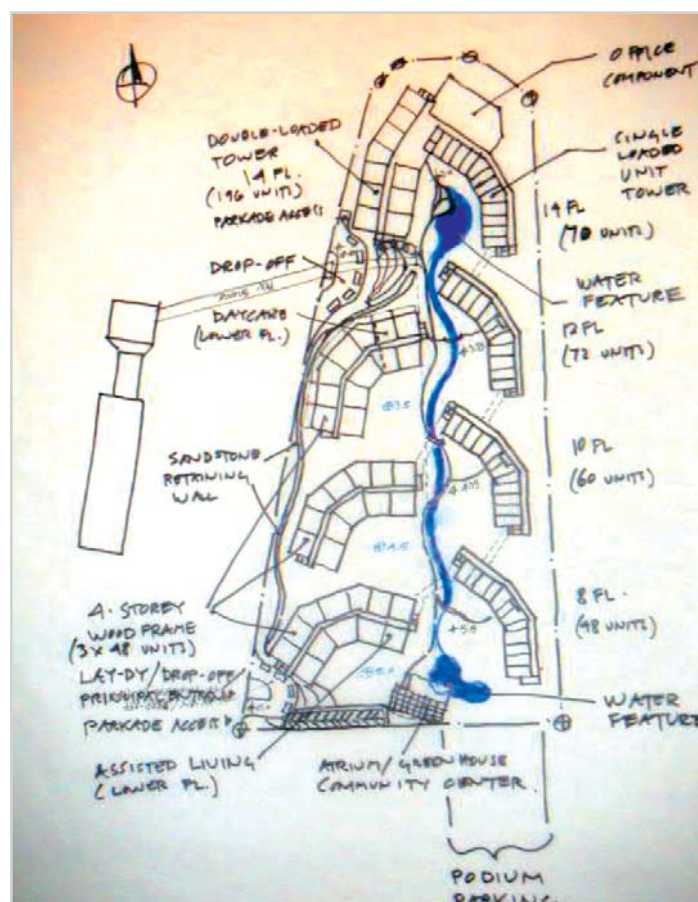 OFFICE
COMPONENT
DOUBLE-LOADED
TOWER
14 FL.
(196 UNITS)
PARKADE ACCESS
CINGLE
LOADED
UNIT
TOWER
14 FL
(70 UNITS)
DROP-OFF
WATER
FEATURE
DAYCARE
(LOWER FL.)
12 FL
(72 UNITS)
+3.5
SANDSTONE
RETAINING
WALL
10 FL
(60 UNITS)
+4.5
4-STOREY
WOOD FRAME
(3 x 48 UNITS)
8 FL.
(48 UNITS)
+5.5
LAY-BY/DROP-OFF
PRINCIPAL ENTRANCE
PARKADE ACCESS
WATER
FEATURE
ASSISTED LIVING
(LOWER FL.)
ATRIUM/GREENHOUSE
COMMUNITY CENTER.
PODIUM
PARKING